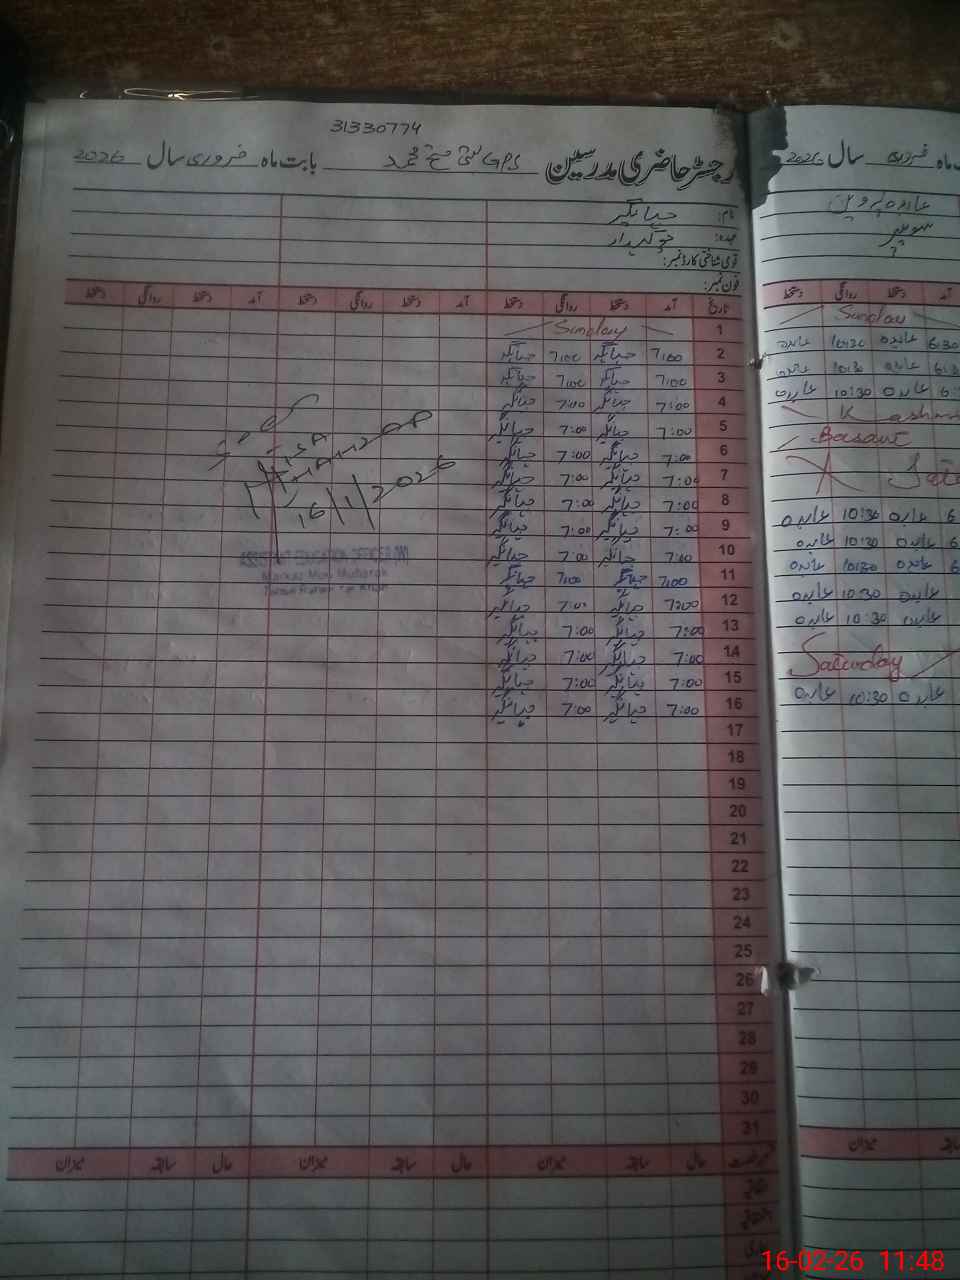 31330774
رجسٹر حاضری مدرسین GPS بستی شیخ محمد بابت ماہ فروری سال 2026
نام: جہانگیر
عہدہ: چوکیدار
قومی شناختی کارڈ نمبر:
فون نمبر:
تاریخ آمد دستخط روانگی دستخط آمد دستخط روانگی دستخط
1 Sunday
2 7:00 جہانگیر 7:00 جہانگیر
3 7:00 جہانگیر 7:00 جہانگیر
4 7:00 جہانگیر 7:00 جہانگیر
5 7:00 جہانگیر 7:00 جہانگیر
6 7:00 جہانگیر 7:00 جہانگیر
7 7:00 جہانگیر 7:00 جہانگیر
8 7:00 جہانگیر 7:00 جہانگیر
9 7:00 جہانگیر 7:00 جہانگیر
10 7:00 جہانگیر 7:00 جہانگیر
11 7:00 جہانگیر 7:00 جہانگیر
12 7:00 جہانگیر 7:00 جہانگیر
13 7:00 جہانگیر 7:00 جہانگیر
14 7:00 جہانگیر 7:00 جہانگیر
15 7:00 جہانگیر 7:00 جہانگیر
16 7:00 جہانگیر 7:00 جہانگیر
17
18
19
20
21
22
23
24
25
26
27
28
29
30
31
حال سابقہ میزان حال سابقہ میزان حال سابقہ میزان
اتفاقیہ
16/1/2026
ASSISTANT EDUCATION OFFICER (M)
Markaz Mau Mubarak
ماہ فروری سال 2026
عابدہ پروین
سویپر
آمد دستخط روانگی دستخط
Sunday
6:30 عابدہ 10:30 عابدہ
6:3 عابدہ 10:30 عابدہ
6: عابدہ 10:30 عابدہ
Kashm
Basant
Satu
6 عابدہ 10:30 عابدہ
6 عابدہ 10:30 عابدہ
6 عابدہ 10:30 عابدہ
عابدہ 10:30 عابدہ
عابدہ 10:30 عابدہ
Saturday
عابدہ 10:30 عابدہ
میزان
16-02-26 11:48